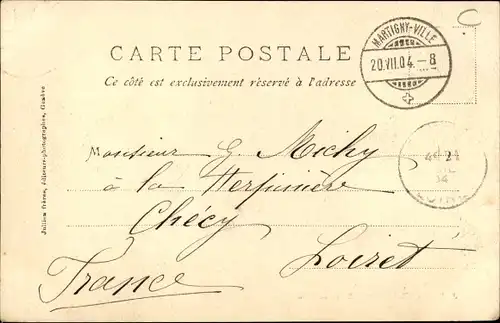 C
CARTE POSTALE
Ce côté est exclusivement réservé à l'adresse
MARTIGNY-VILLE
20.VII.04.-8
Jullien frères, éditeurs-photographes, Genève
Monsieur G. Michy
à la
Chécy
Loiret
France